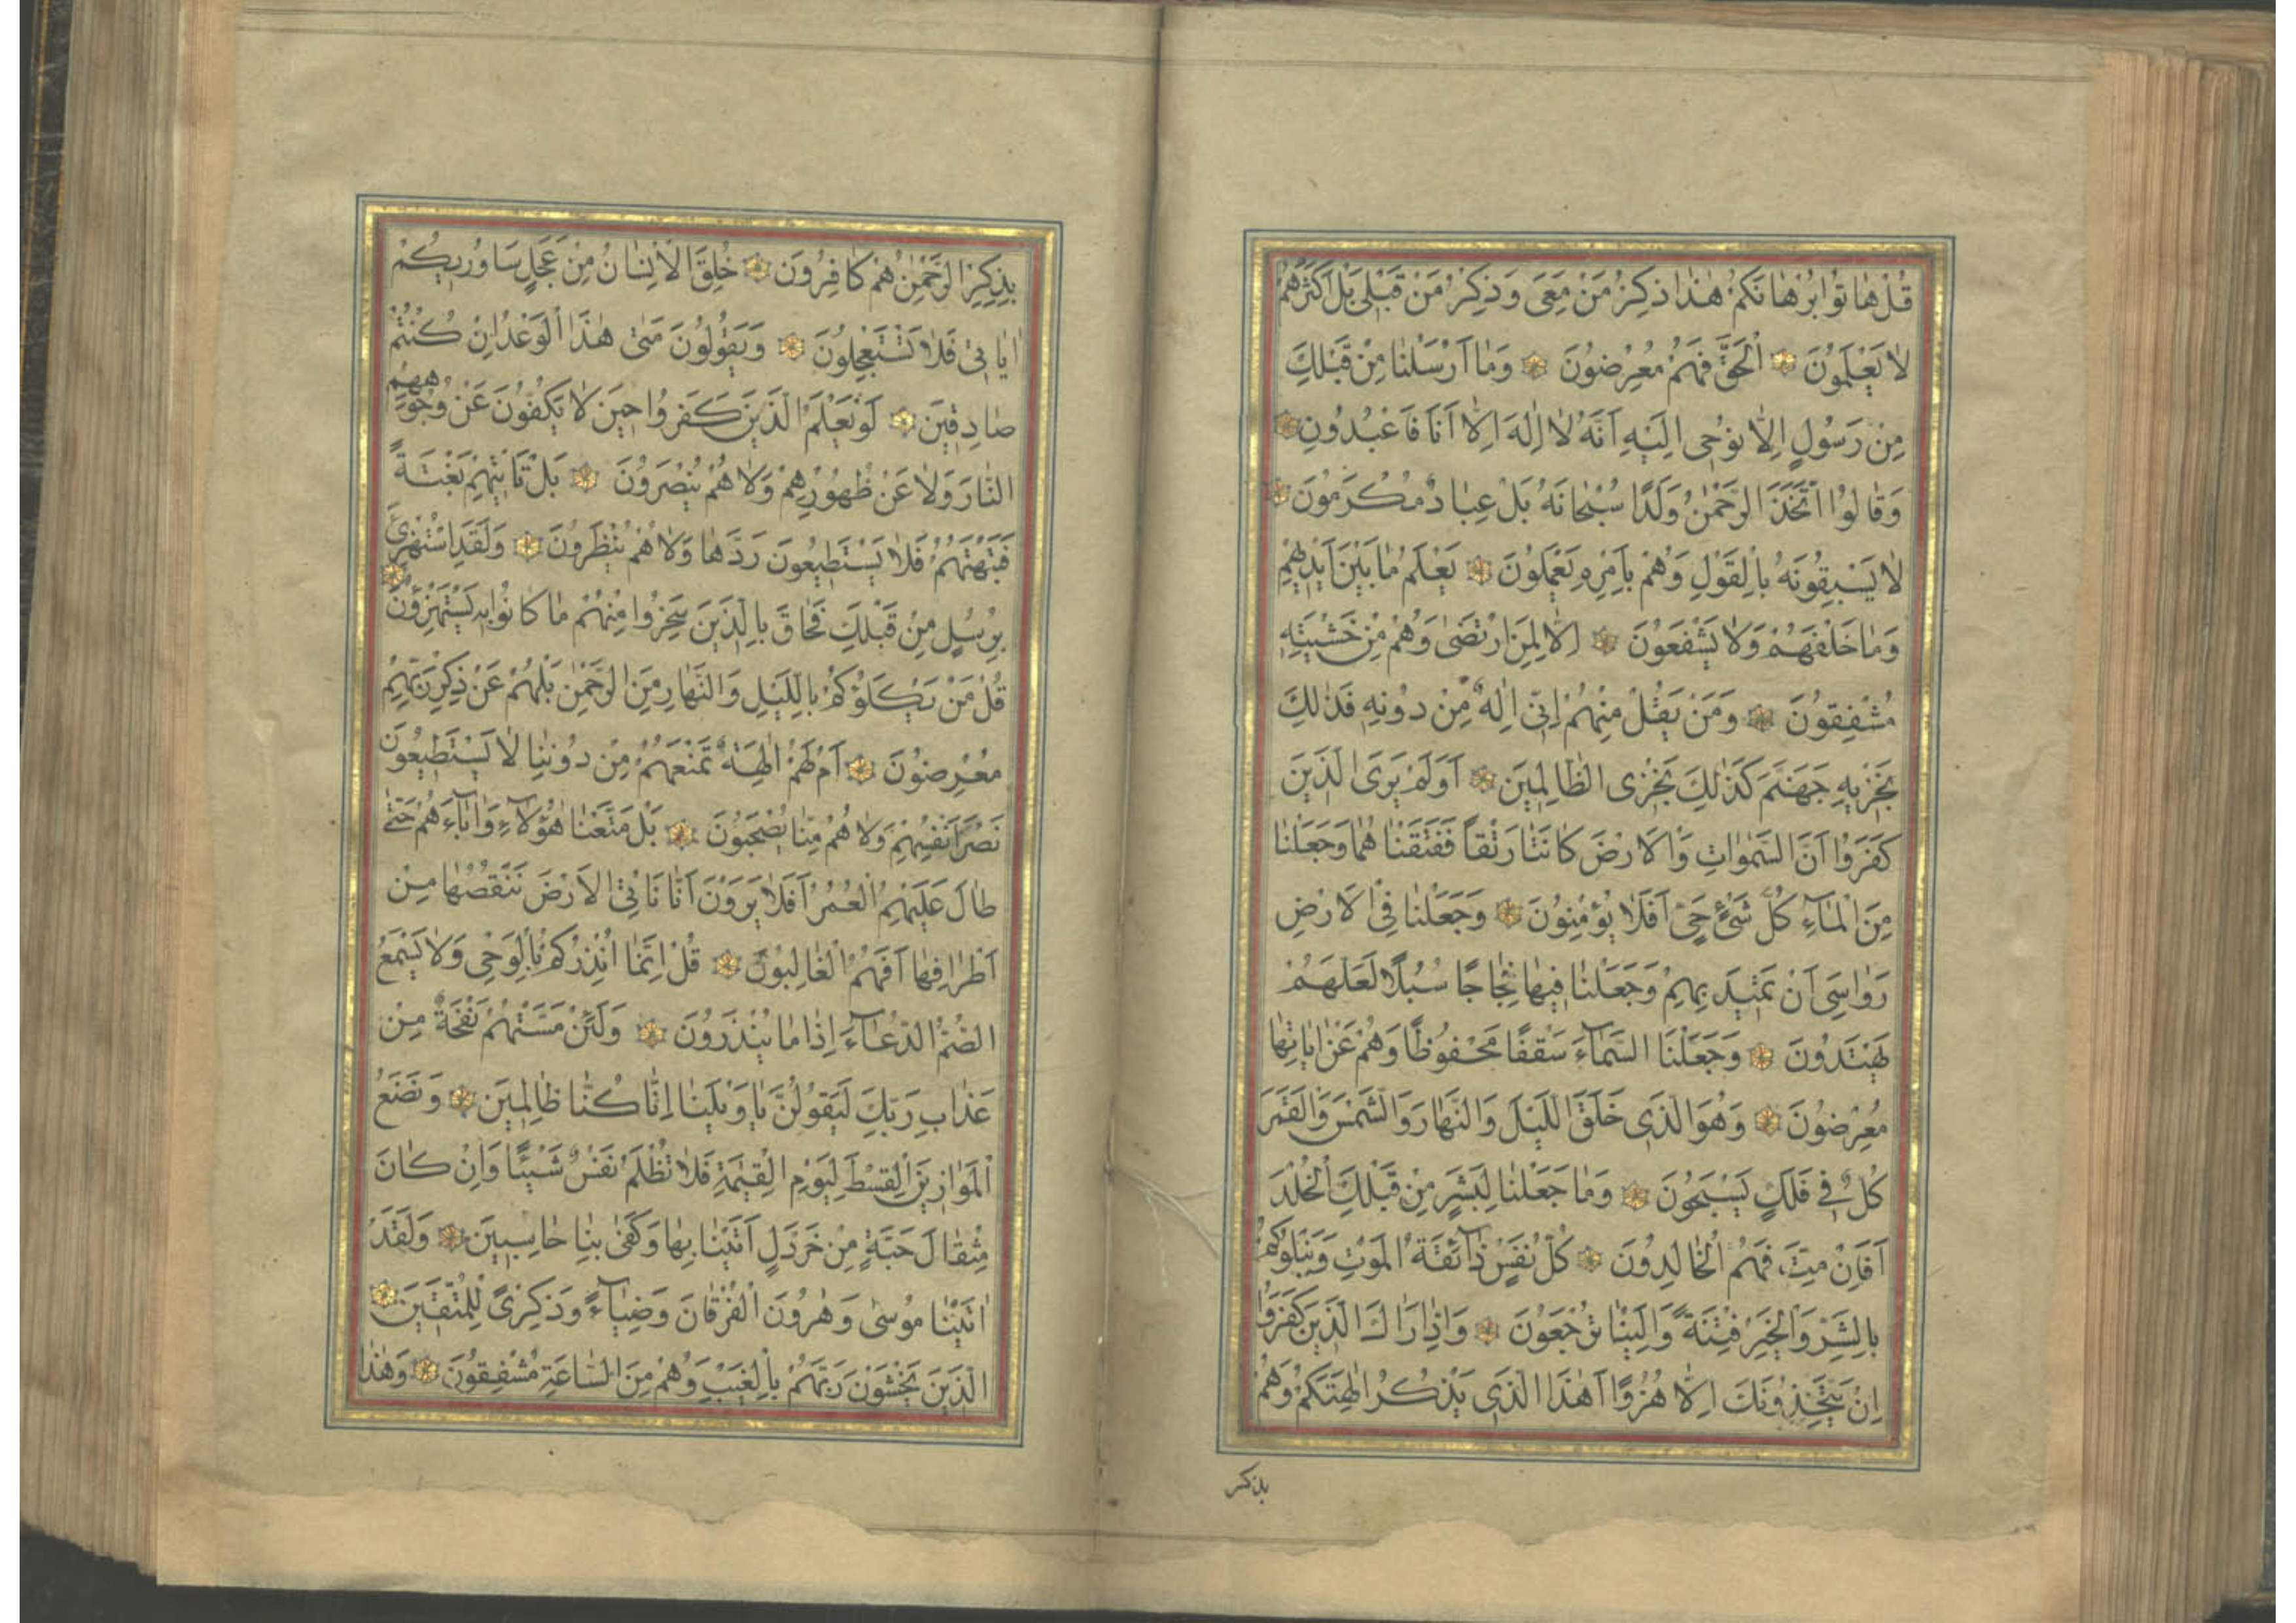 قُلْ هَاتُوا بُرْهَانَكُمْ هٰذَا ذِكْرُ مَنْ مَعِىَ وَذِكْرُ مَنْ قَبْلِى بَلْ اَكْثَرُهُمْ
لَا يَعْلَمُونَ ۞ اَلْحَقَّ فَهُمْ مُعْرِضُونَ ۞ وَمَا اَرْسَلْنَا مِنْ قَبْلِكَ
مِنْ رَسُولٍ اِلَّا نُوحِى اِلَيْهِ اَنَّهُ لَا اِلٰهَ اِلَّا اَنَا فَاعْبُدُونِ ۞
وَقَالُوا اتَّخَذَ الرَّحْمٰنُ وَلَدًا سُبْحَانَهُ بَلْ عِبَادٌ مُكْرَمُونَ ۞
لَا يَسْبِقُونَهُ بِالْقَوْلِ وَهُمْ بِاَمْرِهِ يَعْمَلُونَ ۞ يَعْلَمُ مَا بَيْنَ اَيْدِيهِمْ
وَمَا خَلْفَهُمْ وَلَا يَشْفَعُونَ ۞ اِلَّا لِمَنِ ارْتَضَى وَهُمْ مِنْ خَشْيَتِهِ
مُشْفِقُونَ ۞ وَمَنْ يَقُلْ مِنْهُمْ اِنِّى اِلٰهٌ مِنْ دُونِهِ فَذٰلِكَ
نَجْزِيهِ جَهَنَّمَ كَذٰلِكَ نَجْزِى الظَّالِمِينَ ۞ اَوَلَمْ يَرَى الَّذِينَ
كَفَرُوا اَنَّ السَّمٰوَاتِ وَالْاَرْضَ كَانَتَا رَتْقًا فَفَتَقْنَا هُمَا وَجَعَلْنَا
مِنَ الْمَآءِ كُلَّ شَىْءٍ حَىٍّ اَفَلَا يُؤْمِنُونَ ۞ وَجَعَلْنَا فِى الْاَرْضِ
رَوَاسِىَ اَنْ تَمِيدَ بِهِمْ وَجَعَلْنَا فِيهَا فِجَاجًا سُبُلًا لَعَلَّهُمْ
يَهْتَدُونَ ۞ وَجَعَلْنَا السَّمَآءَ سَقْفًا مَحْفُوظًا وَهُمْ عَنْ اٰيَاتِهَا
مُعْرِضُونَ ۞ وَهُوَ الَّذِى خَلَقَ اللَّيْلَ وَالنَّهَارَ وَالشَّمْسَ وَالْقَمَرَ
كُلٌّ فِى فَلَكٍ يَسْبَحُونَ ۞ وَمَا جَعَلْنَا لِبَشَرٍ مِنْ قَبْلِكَ الْخُلْدَ
اَفَاِنْ مِتَّ فَهُمُ الْخَالِدُونَ ۞ كُلُّ نَفْسٍ ذَآئِقَةُ الْمَوْتِ وَنَبْلُوكُمْ
بِالشَّرِّ وَالْخَيْرِ فِتْنَةً وَاِلَيْنَا تُرْجَعُونَ ۞ وَاِذَا رَاٰكَ الَّذِينَ كَفَرُوا
اِنْ يَتَّخِذُونَكَ اِلَّا هُزُوًا اَهٰذَا الَّذِى يَذْكُرُ اٰلِهَتَكُمْ وَهُمْ
بذكر
بِذِكْرِ الرَّحْمٰنِ هُمْ كَافِرُونَ ۞ خُلِقَ الْاِنْسَانُ مِنْ عَجَلٍ سَاُورِيكُمْ
اٰيَاتِى فَلَا تَسْتَعْجِلُونَ ۞ وَيَقُولُونَ مَتٰى هٰذَا الْوَعْدُ اِنْ كُنْتُمْ
صَادِقِينَ ۞ لَوْ يَعْلَمُ الَّذِينَ كَفَرُوا حِينَ لَا يَكُفُّونَ عَنْ وُجُوهِهِمُ
النَّارَ وَلَا عَنْ ظُهُورِهِمْ وَلَا هُمْ يُنْصَرُونَ ۞ بَلْ تَاْتِيهِمْ بَغْتَةً
فَتَبْهَتُهُمْ فَلَا يَسْتَطِيعُونَ رَدَّهَا وَلَا هُمْ يُنْظَرُونَ ۞ وَلَقَدِ اسْتُهْزِئَ
بِرُسُلٍ مِنْ قَبْلِكَ فَحَاقَ بِالَّذِينَ سَخِرُوا مِنْهُمْ مَا كَانُوا بِهِ يَسْتَهْزِؤُنَ ۞
قُلْ مَنْ يَكْلَؤُكُمْ بِالَّيْلِ وَالنَّهَارِ مِنَ الرَّحْمٰنِ بَلْ هُمْ عَنْ ذِكْرِ رَبِّهِمْ
مُعْرِضُونَ ۞ اَمْ لَهُمْ اٰلِهَةٌ تَمْنَعُهُمْ مِنْ دُونِنَا لَا يَسْتَطِيعُونَ
نَصْرَ اَنْفُسِهِمْ وَلَا هُمْ مِنَّا يُصْحَبُونَ ۞ بَلْ مَتَّعْنَا هٰؤُلَآءِ وَاٰبَآءَهُمْ حَتّٰى
طَالَ عَلَيْهِمُ الْعُمُرُ اَفَلَا يَرَوْنَ اَنَّا نَاْتِى الْاَرْضَ نَنْقُصُهَا مِنْ
اَطْرَافِهَا اَفَهُمُ الْغَالِبُونَ ۞ قُلْ اِنَّمَا اُنْذِرُكُمْ بِالْوَحْىِ وَلَا يَسْمَعُ
الصُّمُّ الدُّعَآءَ اِذَا مَا يُنْذَرُونَ ۞ وَلَئِنْ مَسَّتْهُمْ نَفْحَةٌ مِنْ
عَذَابِ رَبِّكَ لَيَقُولُنَّ يَا وَيْلَنَا اِنَّا كُنَّا ظَالِمِينَ ۞ وَنَضَعُ
الْمَوَازِينَ الْقِسْطَ لِيَوْمِ الْقِيٰمَةِ فَلَا تُظْلَمُ نَفْسٌ شَيْئًا وَاِنْ كَانَ
مِثْقَالَ حَبَّةٍ مِنْ خَرْدَلٍ اَتَيْنَا بِهَا وَكَفٰى بِنَا حَاسِبِينَ ۞ وَلَقَدْ
اٰتَيْنَا مُوسٰى وَهٰرُونَ الْفُرْقَانَ وَضِيَآءً وَذِكْرًى لِلْمُتَّقِينَ ۞
الَّذِينَ يَخْشَوْنَ رَبَّهُمْ بِالْغَيْبِ وَهُمْ مِنَ السَّاعَةِ مُشْفِقُونَ ۞ وَهٰذَا